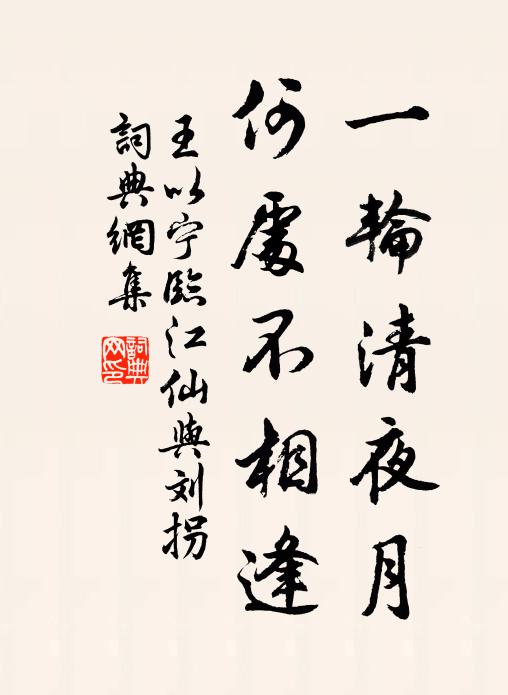 一輪清夜月
何處不相逢
王以宁臨江仙與刘拐
詞典網集
詞典
网印